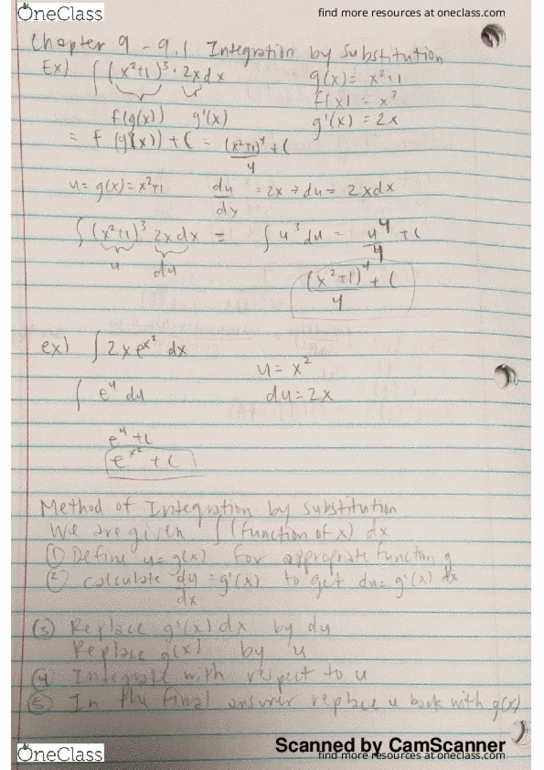 OneClass
find more resources at oneclass.com
Chapter 9 - 9.1 Integration by Substitution
Ex) ∫ (x²+1)³ · 2x dx g(x) = x²+1
f(g(x)) g'(x) f(x) = x³
g'(x) = 2x
= F (g(x)) + C = (x²+1)⁴/4 + C
u = g(x) = x²+1 du/dx = 2x → du = 2xdx
∫ (x²+1)³ 2x dx = ∫ u³ du = u⁴/4 + C
u du
(x²+1)⁴/4 + C
ex) ∫ 2x e^x² dx
u = x²
∫ e^u du du = 2x
e^u + C
e^x² + C
Method of Integration by substitution
We are given ∫ (function of x) dx
① Define u = g(x) for appropriate function g
② calculate du/dx = g'(x) to get du = g'(x) dx
③ Replace g'(x) dx by du
Replace g(x) by u
④ Integrate with respect to u
⑤ In the final answer replace u back with g(x)
Scanned by CamScanner
OneClass
find more resources at oneclass.com